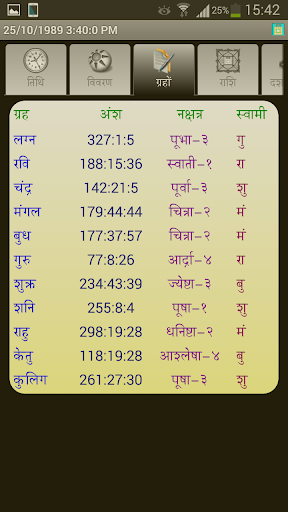 25% 15:42
25/10/1989 3:40:0 PM
तिथि विवरण ग्रहों राशि दश
ग्रह अंश नक्षत्र स्वामी
लग्न 327:1:5 पूभा-३ गु
रवि 188:15:36 स्वाती-१ रा
चंद्र 142:21:5 पूर्वा-३ शु
मंगल 179:44:44 चित्रा-२ मं
बुध 177:37:57 चित्रा-२ मं
गुरु 77:8:26 आर्द्रा-४ रा
शुक्र 234:43:39 ज्येष्टा-३ बु
शनि 255:8:4 पूषा-१ शु
राहु 298:19:28 धनिष्टा-२ मं
केतु 118:19:28 आश्लेषा-४ बु
कुलिग 261:27:30 पूषा-३ शु